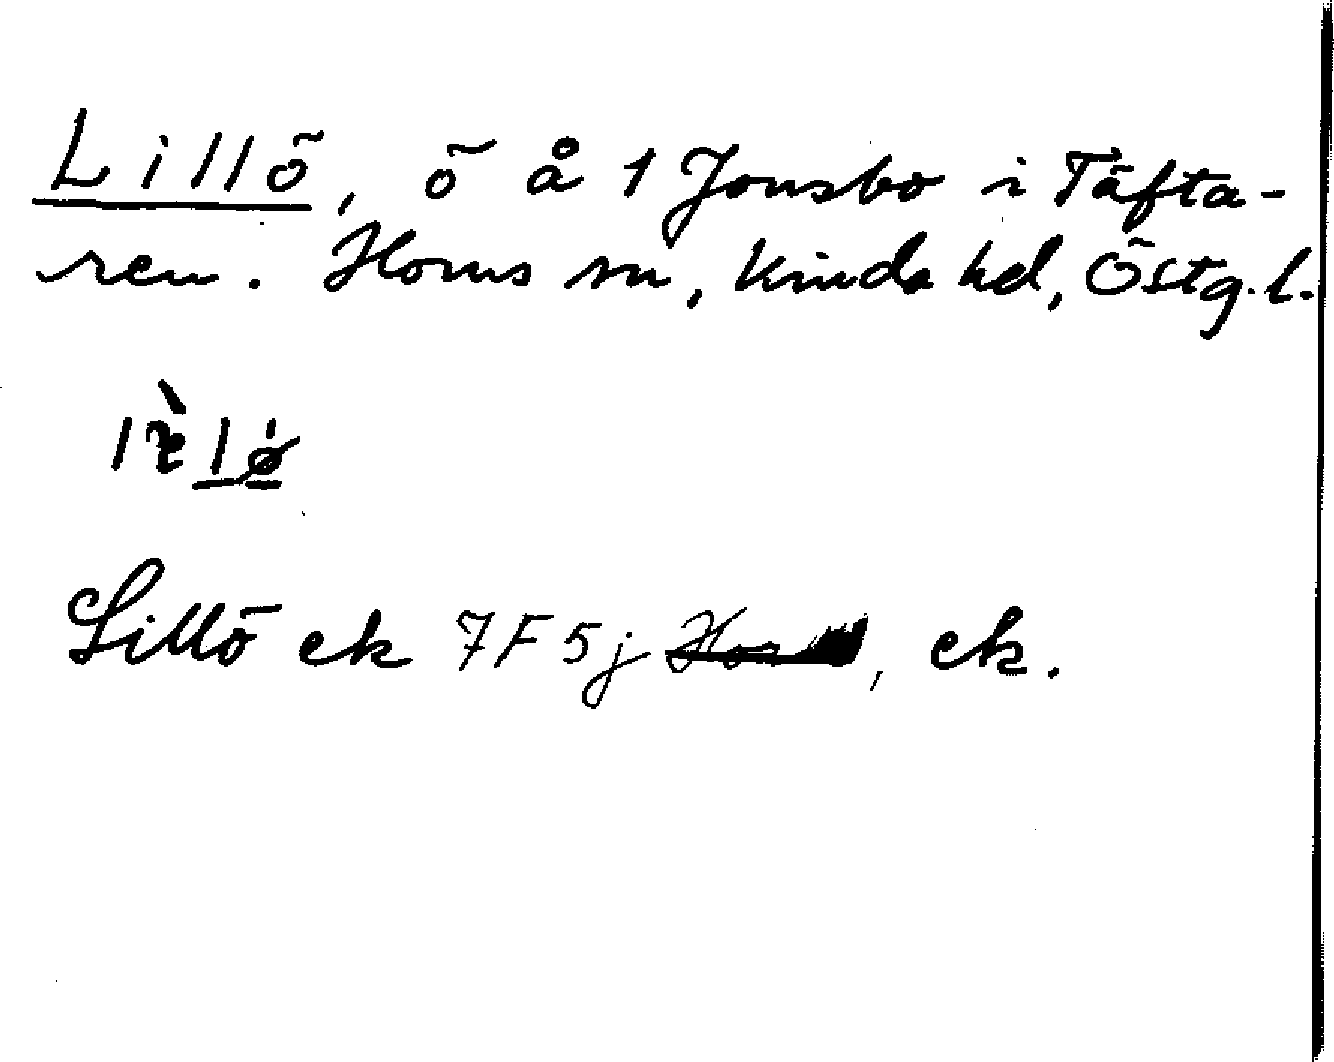 Lillö, ö å 1 Jonsbo i Täfta-
ren. Horns sn, Kinda hd, Östg. l.
Lillö ek 7F5j Hor, ek.